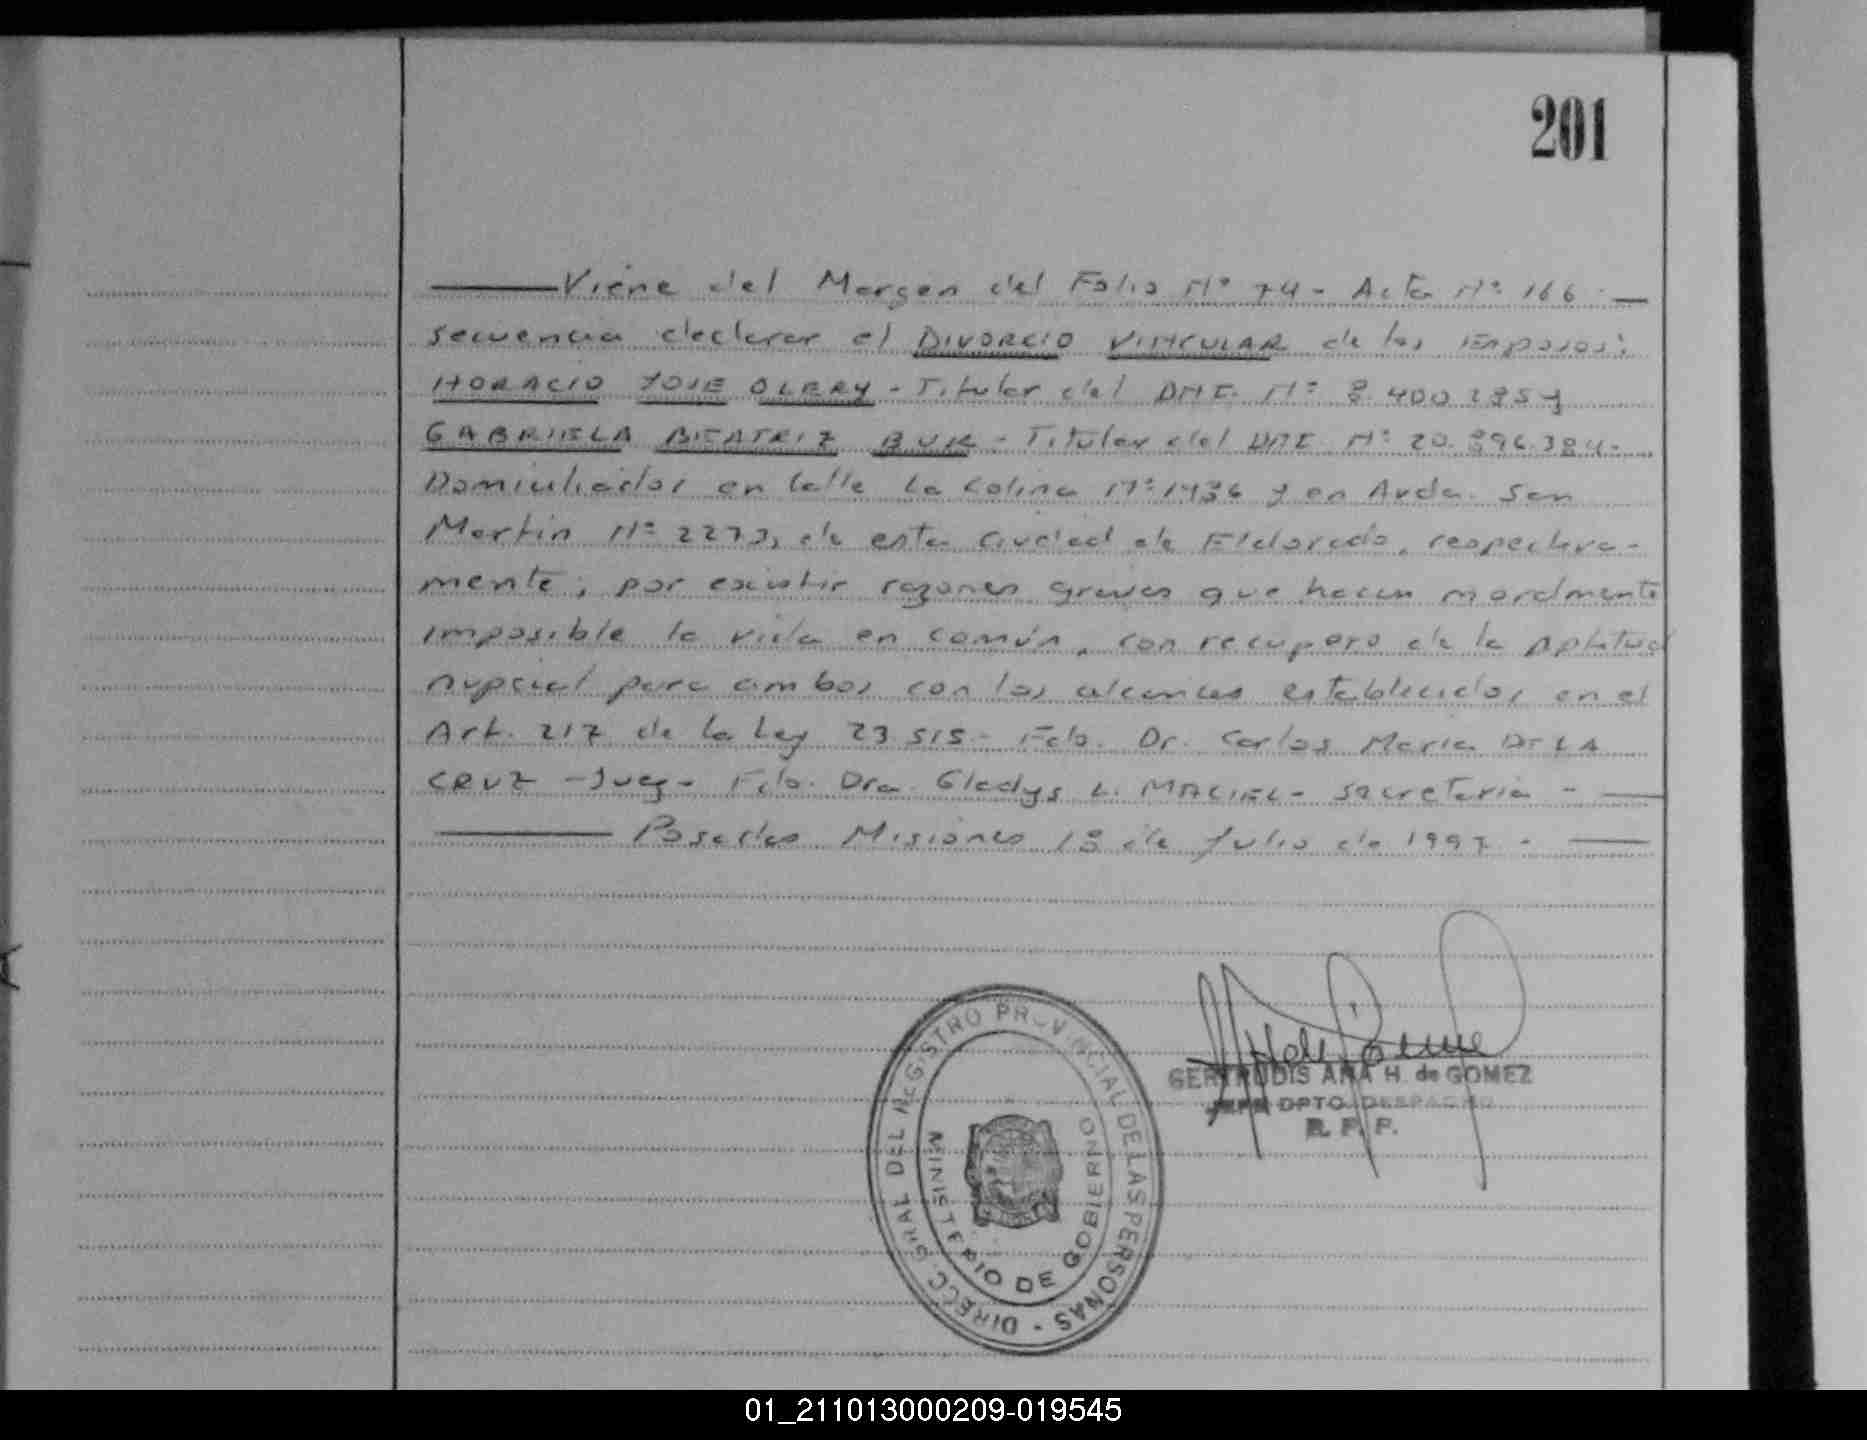 201
Viene del Margen del Folio Nº 74 - Acta Nº 166
secuencia declarar el DIVORCIO VINCULAR de los Esposos:
HORACIO JOSE OLERY - Titular del DNI. Nº 8.400.295 y
GABRIELA BEATRIZ BUK - Titular del DNI. Nº 20.896.384-
Domiciliados en Calle La Colina Nº 1436 y en Avda. San
Martin Nº 2273, de esta ciudad de Eldorado, respectiva-
mente, por existir razones graves que hacen moralmente
imposible la vida en común, con recupero de la Aptitud
nupcial para ambos con los alcances establecidos en el
Art. 217 de la Ley 23.515- Fdo. Dr. Carlos Maria DE LA
CRUZ - Juez - Fdo. Dra. Gladys L. MACIEL - Secretaria -
Posadas Misiones 18 de Julio de 1997 -
DIRECC. GRAL DEL REGISTRO PROVINCIAL DE LAS PERSONAS -
MINISTERIO DE GOBIERNO
GERTRUDIS ANA H. de GOMEZ
JEFE DPTO. DESPACHO
R. P. P.
01_211013000209-019545